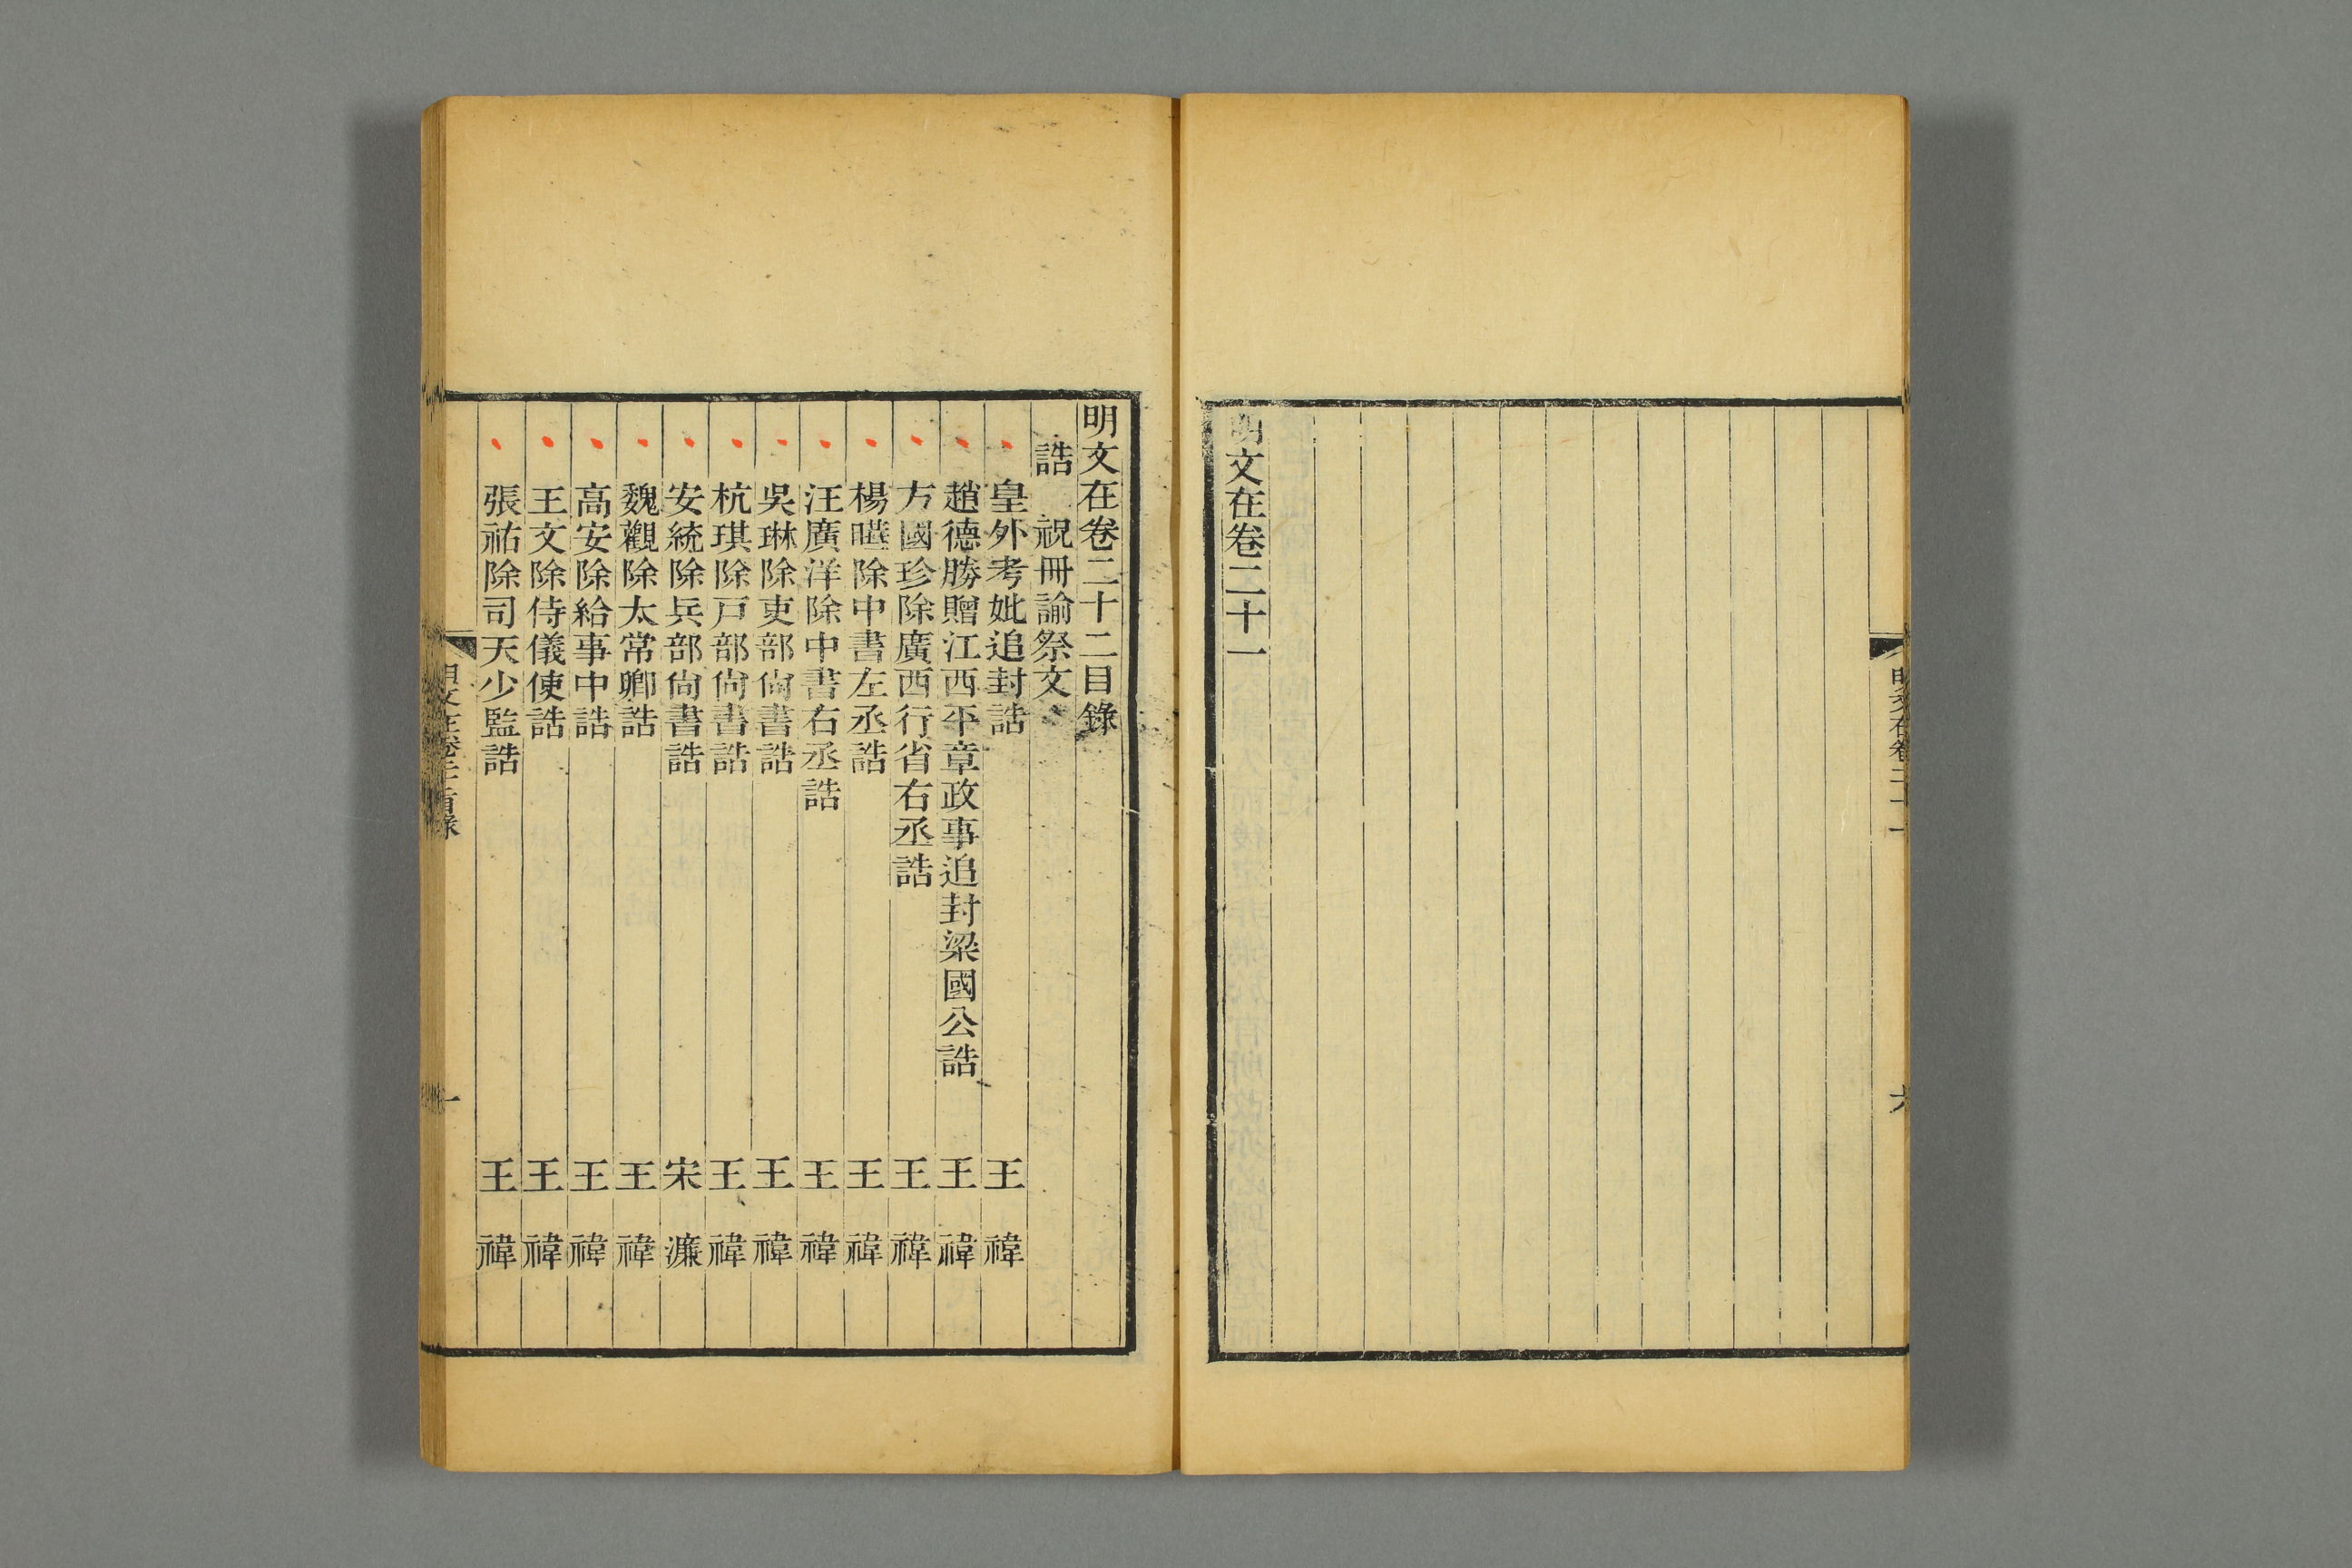 明文在卷二十一
明文在卷二十一
六
明文在卷二十二目錄
誥　祝冊諭祭文
皇外考妣追封誥　王禕
趙德勝贈江西平章政事追封梁國公誥　王禕
方國珍除廣西行省右丞誥　王禕
楊暭除中書左丞誥　王禕
汪廣洋除中書右丞誥　王禕
吳琳除吏部尙書誥　王禕
杭琪除戸部尙書誥　王禕
安統除兵部尙書誥　宋濂
魏觀除太常卿誥　王禕
高安除給事中誥　王禕
王文除侍儀使誥　王禕
張祐除司天少監誥　王禕
明文在卷二十二目錄
一